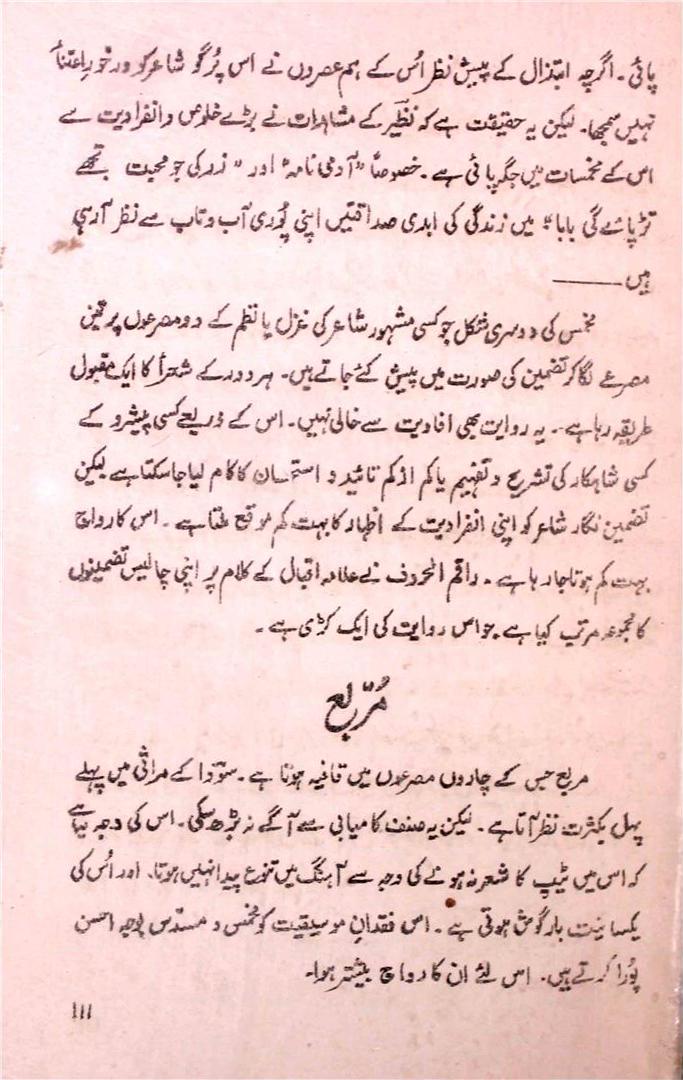 پائی۔ اگرچہ ابتذال کے پیش نظر اُس کے ہم عصروں نے اس پُرگو شاعر کو درخورِ اعتنأ
نہیں سمجھا۔ لیکن یہ حقیقت ہے کہ نظیر کے مشاہدات نے بڑے خلوص و انفرادیت سے
اس کے مخمسات میں جگہ پائی ہے۔ خصوصاً "آدمی نامہ" اور "زر کی جو محبت تجھے
تڑپائے گی بابا" میں زندگی کی ابدی صداقتیں اپنی پُوری آب و تاب سے نظر آ رہی
ہیں ———
مخمس کی دوسری شکل جو کسی مشہور شاعر کی غزل یا نظم کے دو مصرعوں پر تین
مصرعے لگا کر تضمین کی صورت میں پیش کئے جاتے ہیں۔ ہر دور کے شعرأ کا ایک مقبول
طریقہ رہا ہے۔ یہ روایت بھی افادیت سے خالی نہیں۔ اس کے ذریعے کسی پیشرو کے
کسی شاہکار کی تشریح و تفہیم یا کم از کم تائید و استحسان کا کام لیا جا سکتا ہے لیکن
تضمین نگار شاعر کو اپنی انفرادیت کے اظہار کا بہت کم موقع ملتا ہے۔ اس کا رواج
بہت کم ہوتا جا رہا ہے۔ راقم الحروف نے علامہ اقبال کے کلام پر اپنی چالیس تضمینوں
کا مجموعہ مرتب کیا ہے جو اس روایت کی ایک کڑی ہے۔
مُربّع
مربع جس کے چاروں مصرعوں میں قافیہ ہوتا ہے۔ سوداؔ کے مراثی میں پہلے
پہل بکثرت نظر آتا ہے۔ لیکن یہ صنف کامیابی سے آگے نہ بڑھ سکی۔ اس کی وجہ یہ ہے
کہ اس میں ٹیپ کا شعر نہ ہونے کی وجہ سے آہنگ میں تنوع پیدا نہیں ہوتا۔ اور اُس کی
یکسانیت بارِ گوش ہوتی ہے۔ اس فقدانِ موسیقیت کو مخمس و مسدس بوجہ احسن
پُورا کرتے ہیں۔ اس لئے ان کا رواج بیشتر ہوا۔
۱۱۱